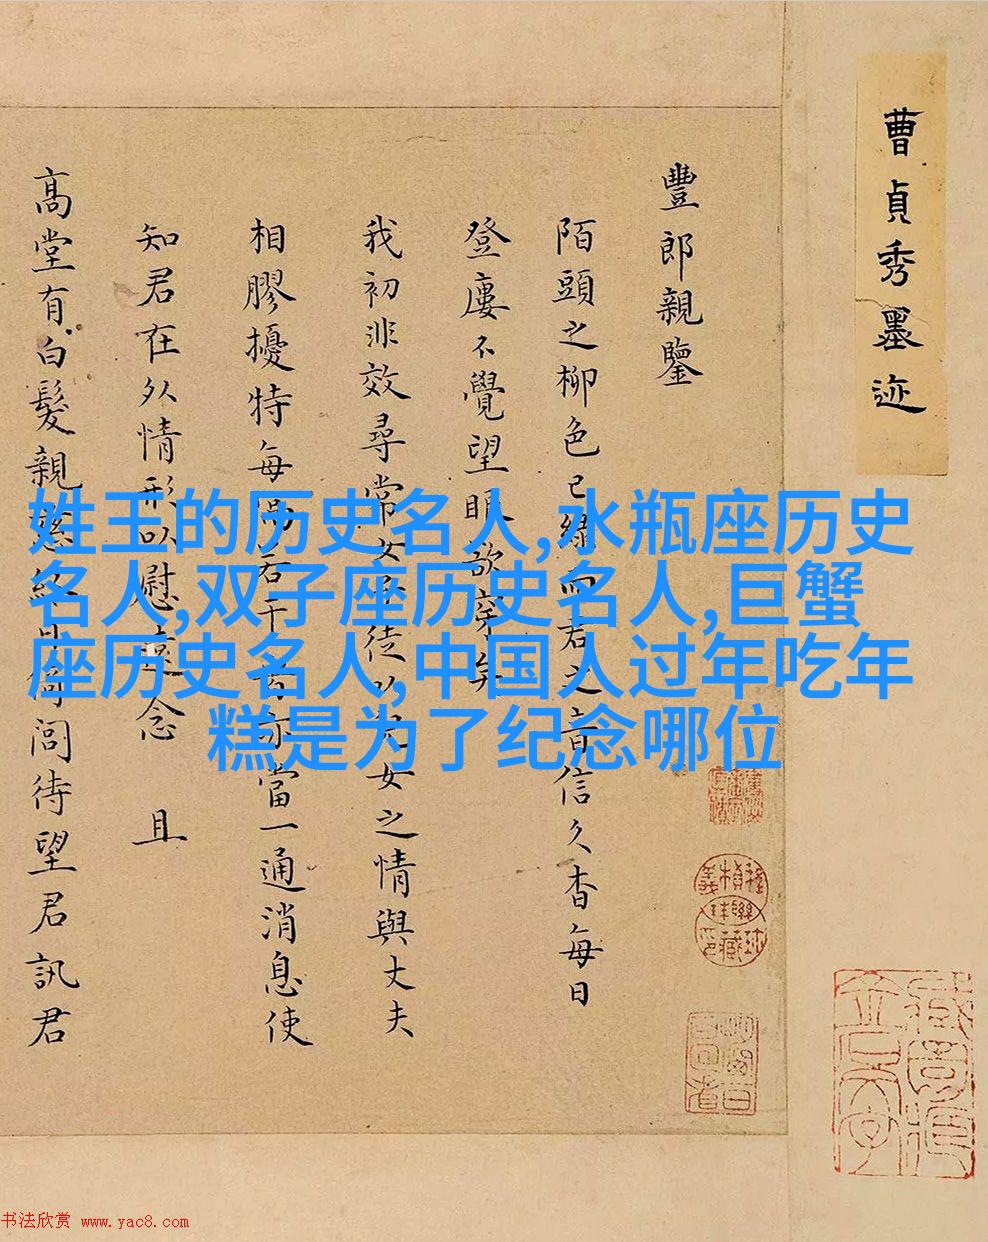 曹貞秀墨迹
豐郎親鑒
陌頭之柳色已綠而君之音信久杳每日
登廔不覺望眼欲穿矣
我初非效尋常女子徒以兒女之情與丈夫
相膠擾特每隔若干日亦當一通消息使
知君在外情形以慰遠念 且
高堂有白髮親慈終日倚閭待望君訊君
姓王的历史名人,水瓶座历史
名人,双子座历史名人,巨蟹
座历史名人,中国人过年吃年
糕是为了纪念哪位
书法欣赏 www.yac8.com